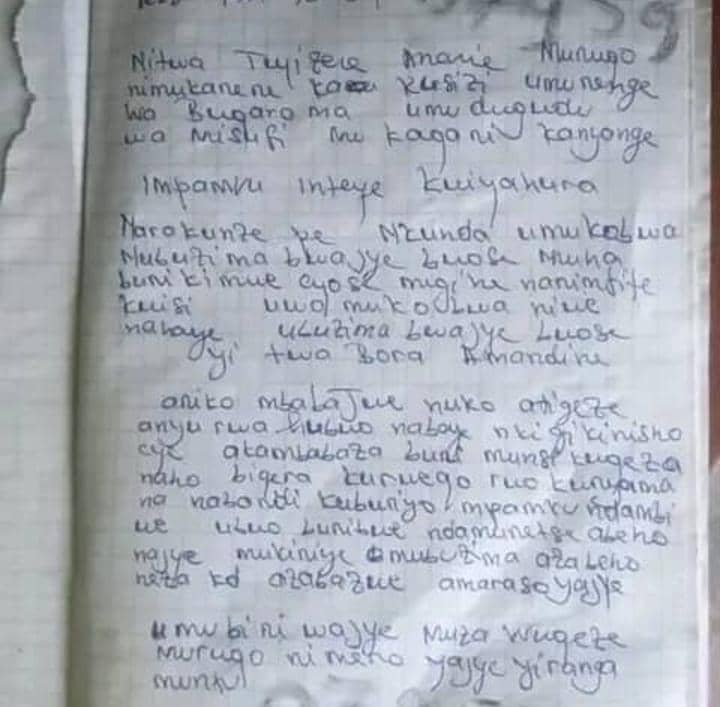 Nitwa Tuyizere Ananie Murugo
nimukanene kusizi umunenge
wo Bugaroma umudugudu
wa Misufi mu kagari kanyonge
Impamvu inteye kwiyahura
Narokunze pe Nkunda umukobwa
Mubuzima bwajye bwose Muha
buri kimwe cyose migihe nanimfite
kwisi uwo mukobwa niwe
nabaye ubuzima bwajye bwose
yitwa Bora Amandine
ariko mbabajwe nuko atigeze
anyurwa nabaye nkigikinisho
cye atambabaza buri munsi kugeza
naho bigera kurwego rwo kuryama
na nabondi kuburiyo impamvu ndambi
we ubuo buribwe ndamunetse abeho
najye mukiniye mubuzima azabeho
neza kd azabazwe amarasoyajye
umubiri wajye Muza wugeze
Murugo ni meho yajye yiranga
muntu